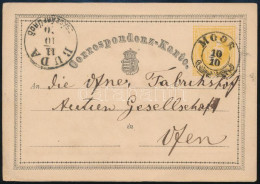 MOÓR
10/10
BUDA
11
10
Correspondenz-Karte.
die Ofner Fabrikshof
Actien Gesellschaft
in
Ofen